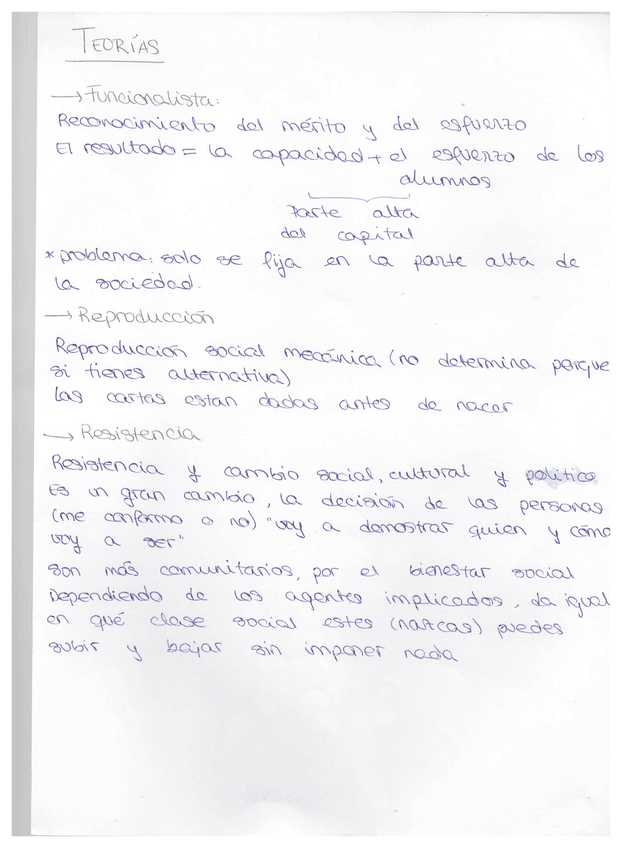 TEORÍAS
→ Funcionalista:
Reconocimiento del mérito y del esfuerzo
El resultado = la capacidad + el esfuerzo de los
alumnos
Parte alta
del capital
* problema: solo se fija en la parte alta de
la sociedad.
→ Reproducción
Reproducción social mecánica (no determina porque
si tienes alternativa)
Las cartas estan dadas antes de nacer
→ Resistencia
Resistencia y cambio social, cultural y politico
Es un gran cambio, la decisión de las personas
(me conformo o no) "voy a demostrar quien y cómo
voy a ser"
son más comunitarios, por el bienestar social
Dependiendo de los agentes implicados, da igual
en qué clase social estes (nazcas) puedes
subir y bajar sin imponer nada